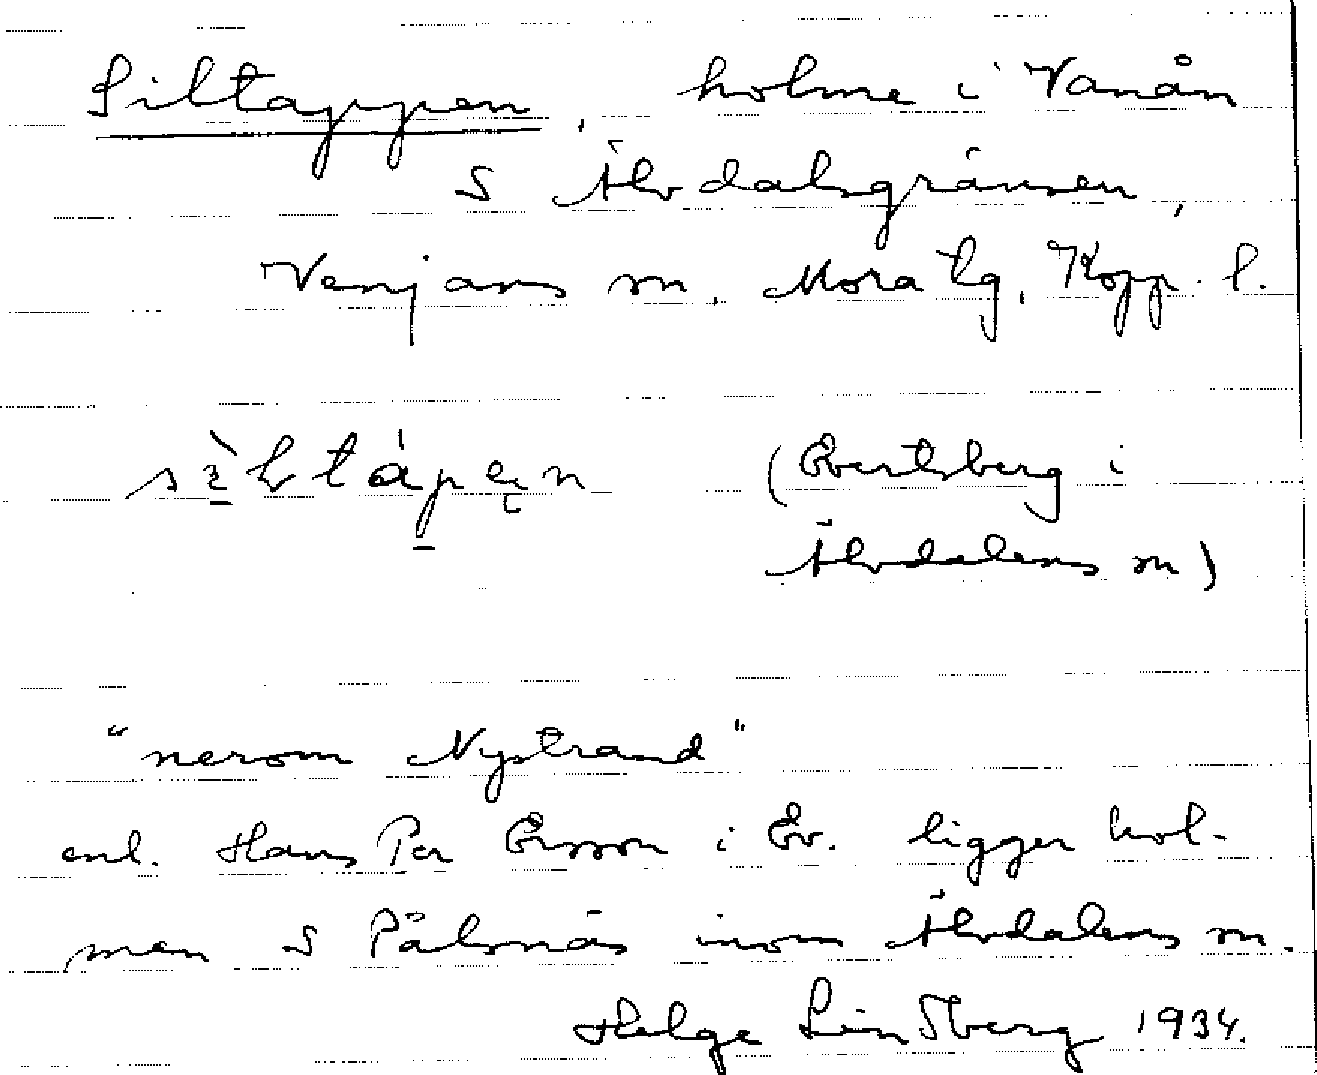 Siltappen, holme i Vanån
S Älvdalsgränsen,
Venjans sn, Mora tg, Kopp. l.
(Evertsberg i
Älvdalens sn)
"nerom Nystrand"
enl. Hans Per Ersson i Ev. ligger hol-
men S Pålsnäs inom Älvdalens sn.
Helge Lindberg 1934.